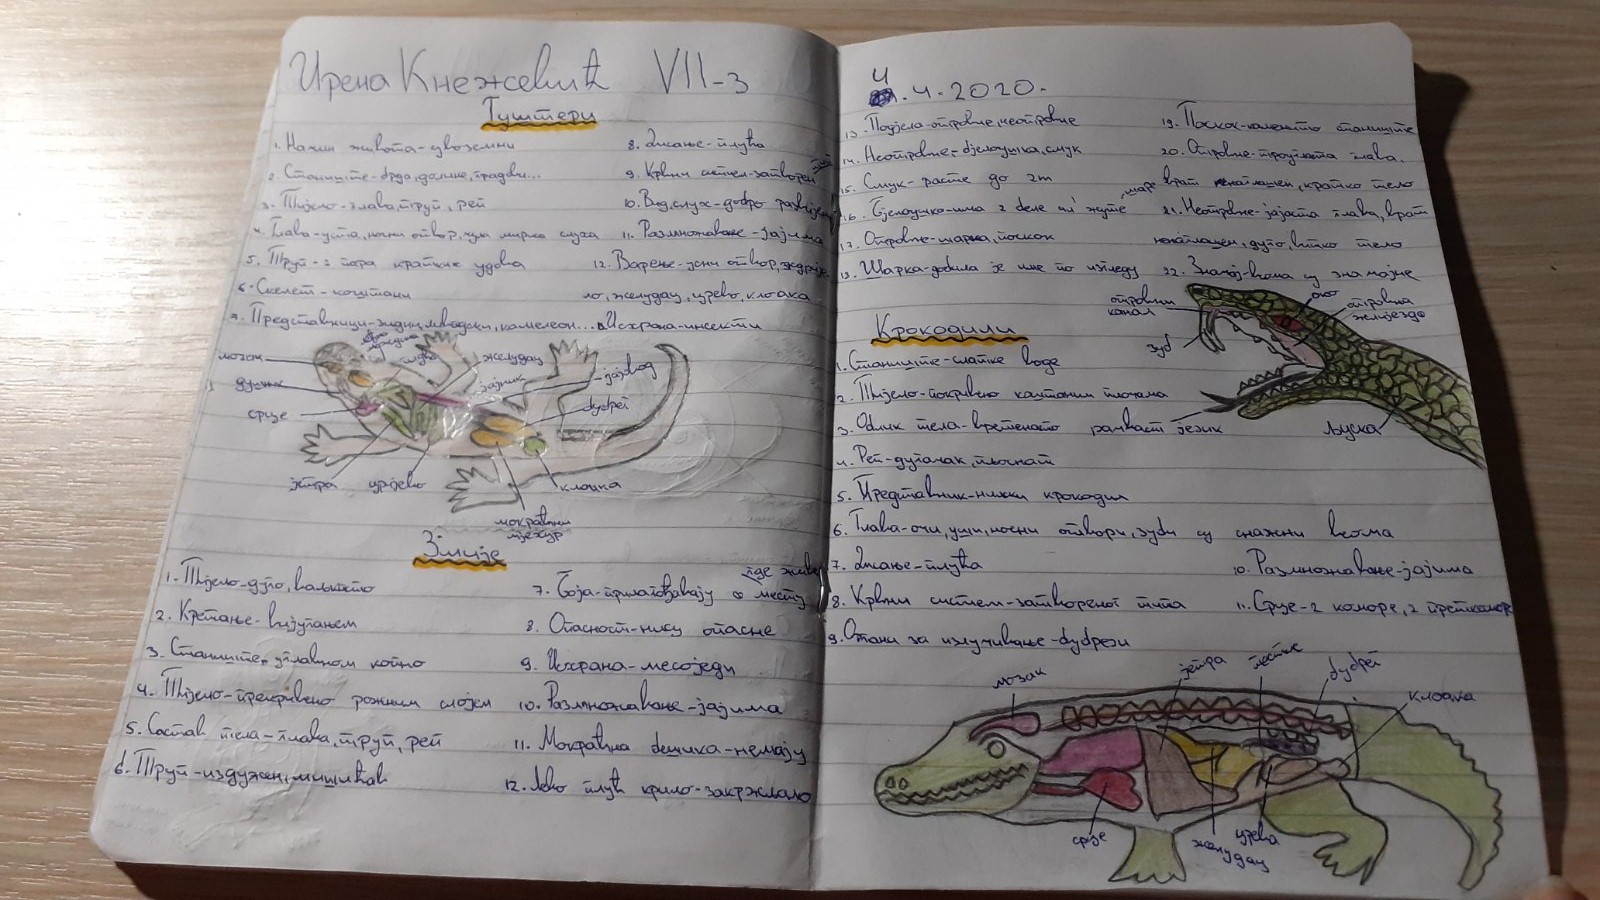 Ирена Кнежевић VII-3
Гуштери
1. Начин живота-двоземни
2. Станиште-брда, долине, градови...
3. Тијело-глава, труп, реп
4. Глава-уста, носни отвор, чула мириса слуха
5. Труп-2 пара кратких удова
6. Скелет-коштани
7. Представници-зидни, ливадски, камелеон...
8. Дисање-плућа
9. Крвни систем-затворен
10. Вид, слух-добро развијени
11. Размножавање-јајима
12. Варење-усни отвор, ждрије
ло, желудац, цријево, клоака
Исхрана-инсекти
мозак
душник
срце
јетра
цријево
желудац
јајник
јајовод
бубрег
клоака
мокраћни
мјехур
Змије
1. Тијело-дуго, ваљкасто
2. Кретање-вијугањем
3. Станиште-углавном копно
4. Тијело-прекривено рожним слојем
5. Састав тела-глава, труп, реп
6. Труп-издужен, мишићав
гдје живе
7. Боја-прилагођавају се месту
8. Опасност-нису опасне
9. Исхрана-месоједи
10. Размножавање-јајима
11. Мокраћна бешика-немају
12. Лево плућ крило-закржљало
4.4.2020.
13. Подјела-отровне, неотровне
14. Неотровне-бјелоушка, смук
15. Смук-расте до 2m
16. Бјелоушка-има 2 беле ил' жуте
17. Отровне-шарка, поскок
18. Шарка-добила је име по изгледу
19. Поскок-каменито станиште
20. Отровне-троугласта глава,
врат ненаглашен, кратко тело
21. Неотровне-јајаста глава, врат
ненаглашен, дуго витко тело
22.
отровни
канал
зуб
око
отровна
жлијезда
рачваст језик
љуска
Крокодили
1. Станиште-слатке воде
2. Тијело-покривено коштаним плочама
3. Облик тела-вретенасто
4. Реп-дугачак, пљоснат
5. Представник-нилски крокодил
6. Глава-очи, уши, носни отвори, зуби су снажни веома
7. Дисање-плућа
8. Крвни систем-затвореног типа
9. Огани за излучивање-бубрези
10. Размножавање-јајима
11. Срце-2 коморе, 2 преткоморе
мозак
јетра
бубрег
клоака
срце
желудац
цријева